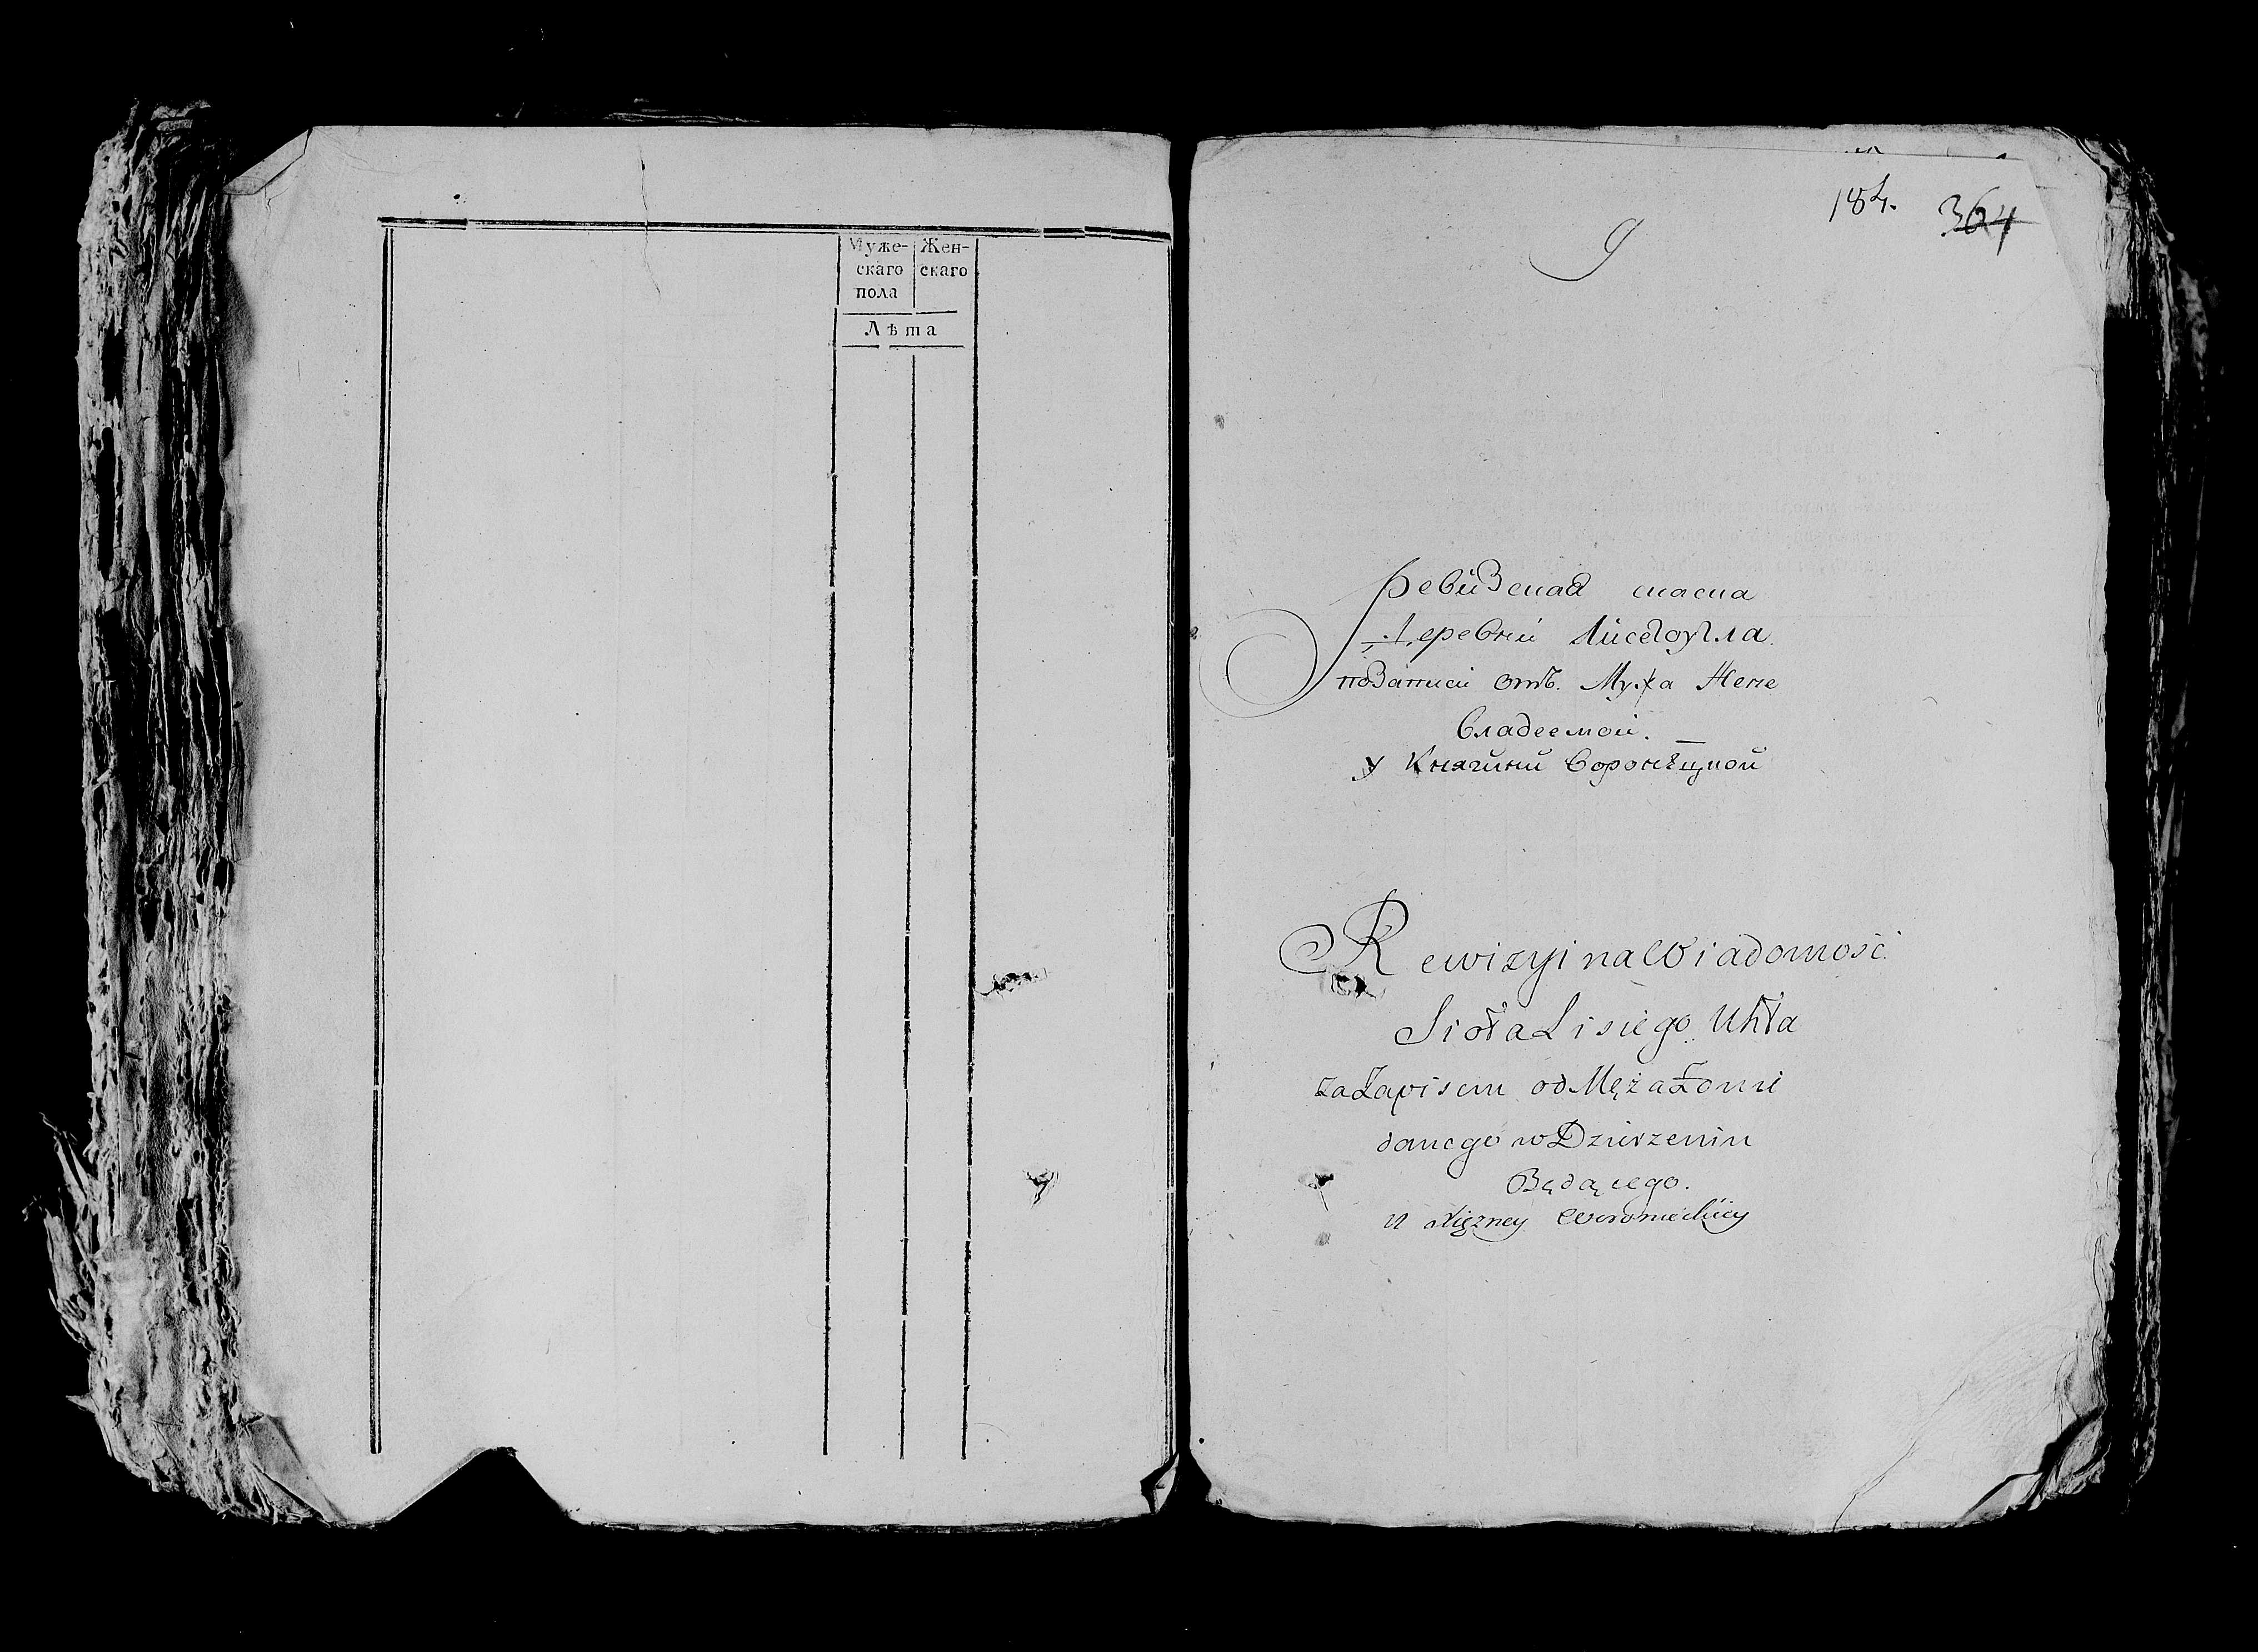 Муже- Жен-
скаго скаго
пола
Лѣта
184. 364
9
Ревизская скаска
Деревни Лисегоугла
по Записи отъ Мужа Жене
владеемой.
у Княгини Воронѣцкой
Rewizyina Wiadomość
Sioła Lisiego Uhła
za Zapisem od Męża Żonie
danego w Dzierżeniu
Będącego.
u Xiężney Woronieckiey